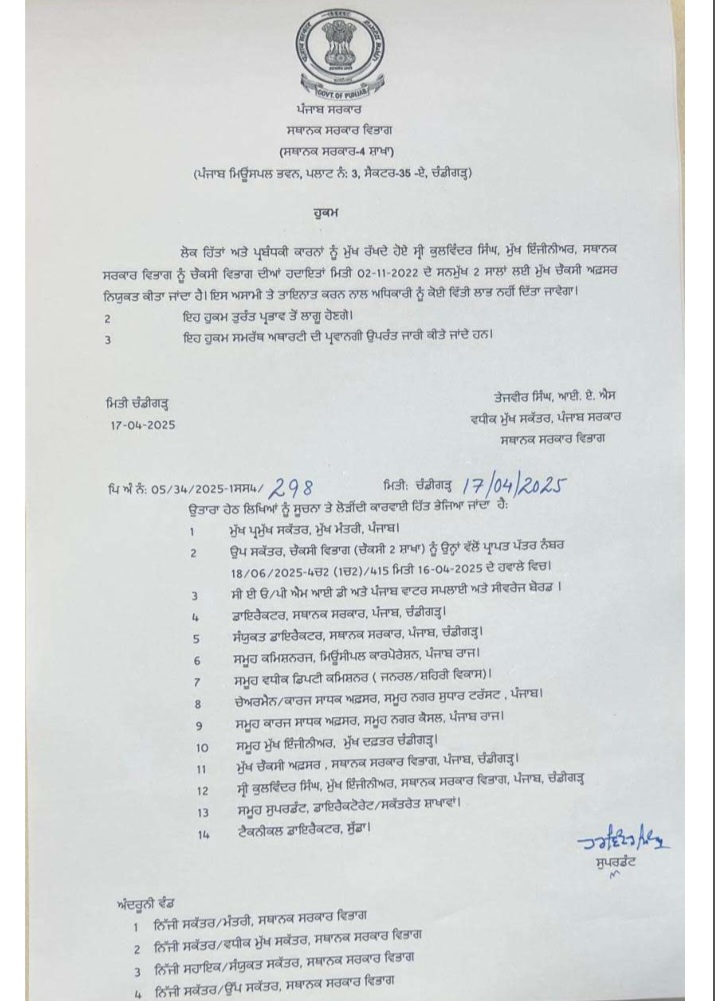 GOVT. OF PUNJAB
ਪੰਜਾਬ ਸਰਕਾਰ
ਸਥਾਨਕ ਸਰਕਾਰ ਵਿਭਾਗ
(ਸਥਾਨਕ ਸਰਕਾਰ-4 ਸ਼ਾਖਾ)
(ਪੰਜਾਬ ਮਿਉਂਸਪਲ ਭਵਨ, ਪਲਾਟ ਨੰ: 3, ਸੈਕਟਰ-35 -ਏ, ਚੰਡੀਗੜ੍ਹ)
ਹੁਕਮ
ਲੋਕ ਹਿੱਤਾਂ ਅਤੇ ਪ੍ਰਬੰਧਕੀ ਕਾਰਨਾਂ ਨੂੰ ਮੁੱਖ ਰੱਖਦੇ ਹੋਏ ਸ੍ਰੀ ਕੁਲਵਿੰਦਰ ਸਿੰਘ, ਮੁੱਖ ਇੰਜੀਨੀਅਰ, ਸਥਾਨਕ
ਸਰਕਾਰ ਵਿਭਾਗ ਨੂੰ ਚੌਕਸੀ ਵਿਭਾਗ ਦੀਆਂ ਹਦਾਇਤਾਂ ਮਿਤੀ 02-11-2022 ਦੇ ਸਨਮੁੱਖ 2 ਸਾਲਾਂ ਲਈ ਮੁੱਖ ਚੌਕਸੀ ਅਫ਼ਸਰ
ਨਿਯੁਕਤ ਕੀਤਾ ਜਾਂਦਾ ਹੈ। ਇਸ ਅਸਾਮੀ ਤੇ ਤਾਇਨਾਤ ਕਰਨ ਨਾਲ ਅਧਿਕਾਰੀ ਨੂੰ ਕੋਈ ਵਿੱਤੀ ਲਾਭ ਨਹੀਂ ਦਿੱਤਾ ਜਾਵੇਗਾ।
2 ਇਹ ਹੁਕਮ ਤੁਰੰਤ ਪ੍ਰਭਾਵ ਤੋਂ ਲਾਗੂ ਹੋਣਗੇ।
3 ਇਹ ਹੁਕਮ ਸਮਰੱਥ ਅਥਾਰਟੀ ਦੀ ਪ੍ਰਵਾਨਗੀ ਉਪਰੰਤ ਜਾਰੀ ਕੀਤੇ ਜਾਂਦੇ ਹਨ।
ਤੇਜਵੀਰ ਸਿੰਘ, ਆਈ. ਏ. ਐਸ
ਮਿਤੀ ਚੰਡੀਗੜ੍ਹ
ਵਧੀਕ ਮੁੱਖ ਸਕੱਤਰ, ਪੰਜਾਬ ਸਰਕਾਰ
17-04-2025
ਸਥਾਨਕ ਸਰਕਾਰ ਵਿਭਾਗ
ਪਿ ਅੰ ਨੰ: 05/34/2025-1ਸਸ4/ 298 ਮਿਤੀ: ਚੰਡੀਗੜ੍ਹ 17/04/2025
ਉਤਾਰਾ ਹੇਠ ਲਿਖਿਆਂ ਨੂੰ ਸੂਚਨਾ ਤੇ ਲੋੜੀਂਦੀ ਕਾਰਵਾਈ ਹਿੱਤ ਭੇਜਿਆ ਜਾਂਦਾ ਹੈ:
1 ਮੁੱਖ ਪ੍ਰਮੁੱਖ ਸਕੱਤਰ, ਮੁੱਖ ਮੰਤਰੀ, ਪੰਜਾਬ।
2 ਉਪ ਸਕੱਤਰ, ਚੌਕਸੀ ਵਿਭਾਗ (ਚੌਕਸੀ 2 ਸ਼ਾਖਾ) ਨੂੰ ਉਨ੍ਹਾਂ ਵੱਲੋਂ ਪ੍ਰਾਪਤ ਪੱਤਰ ਨੰਬਰ
18/06/2025-4ਚ2 (1ਚ2)/415 ਮਿਤੀ 16-04-2025 ਦੇ ਹਵਾਲੇ ਵਿਚ।
3 ਸੀ ਈ ਓ/ਪੀ ਐਮ ਆਈ ਡੀ ਅਤੇ ਪੰਜਾਬ ਵਾਟਰ ਸਪਲਾਈ ਅਤੇ ਸੀਵਰੇਜ ਬੋਰਡ ।
4 ਡਾਇਰੈਕਟਰ, ਸਥਾਨਕ ਸਰਕਾਰ, ਪੰਜਾਬ, ਚੰਡੀਗੜ੍ਹ।
5 ਸੰਯੁਕਤ ਡਾਇਰੈਕਟਰ, ਸਥਾਨਕ ਸਰਕਾਰ, ਪੰਜਾਬ, ਚੰਡੀਗੜ੍ਹ।
6 ਸਮੂਹ ਕਮਿਸ਼ਨਰਜ, ਮਿਊਂਸੀਪਲ ਕਾਰਪੋਰੇਸ਼ਨ, ਪੰਜਾਬ ਰਾਜ।
7 ਸਮੂਹ ਵਧੀਕ ਡਿਪਟੀ ਕਮਿਸ਼ਨਰ ( ਜਨਰਲ/ਸ਼ਹਿਰੀ ਵਿਕਾਸ)।
8 ਚੇਅਰਮੈਨ/ਕਾਰਜ ਸਾਧਕ ਅਫ਼ਸਰ, ਸਮੂਹ ਨਗਰ ਸੁਧਾਰ ਟਰੱਸਟ , ਪੰਜਾਬ।
9 ਸਮੂਹ ਕਾਰਜ ਸਾਧਕ ਅਫ਼ਸਰ, ਸਮੂਹ ਨਗਰ ਕੌਸਲ, ਪੰਜਾਬ ਰਾਜ।
10 ਸਮੂਹ ਮੁੱਖ ਇੰਜੀਨੀਅਰ, ਮੁੱਖ ਦਫ਼ਤਰ ਚੰਡੀਗੜ੍ਹ।
11 ਮੁੱਖ ਚੌਕਸੀ ਅਫ਼ਸਰ , ਸਥਾਨਕ ਸਰਕਾਰ ਵਿਭਾਗ, ਪੰਜਾਬ, ਚੰਡੀਗੜ੍ਹ।
12 ਸ੍ਰੀ ਕੁਲਵਿੰਦਰ ਸਿੰਘ, ਮੁੱਖ ਇੰਜੀਨੀਅਰ, ਸਥਾਨਕ ਸਰਕਾਰ ਵਿਭਾਗ, ਪੰਜਾਬ, ਚੰਡੀਗੜ੍ਹ
13 ਸਮੂਹ ਸੁਪਰਡੰਟ, ਡਾਇਰੈਕਟੋਰੇਟ/ਸਕੱਤਰੇਤ ਸ਼ਾਖਾਵਾਂ।
14 ਟੈਕਨੀਕਲ ਡਾਇਰੈਕਟਰ, ਸੂੱਡਾ।
ਸੁਪਰਡੰਟ
ਅੰਦਰੂਨੀ ਵੰਡ
1 ਨਿੱਜੀ ਸਕੱਤਰ/ਮੰਤਰੀ, ਸਥਾਨਕ ਸਰਕਾਰ ਵਿਭਾਗ
2 ਨਿੱਜੀ ਸਕੱਤਰ/ਵਧੀਕ ਮੁੱਖ ਸਕੱਤਰ, ਸਥਾਨਕ ਸਰਕਾਰ ਵਿਭਾਗ
3 ਨਿੱਜੀ ਸਹਾਇਕ/ਸੰਯੁਕਤ ਸਕੱਤਰ, ਸਥਾਨਕ ਸਰਕਾਰ ਵਿਭਾਗ
4 ਨਿੱਜੀ ਸਕੱਤਰ/ਉੱਪ ਸਕੱਤਰ, ਸਥਾਨਕ ਸਰਕਾਰ ਵਿਭਾਗ